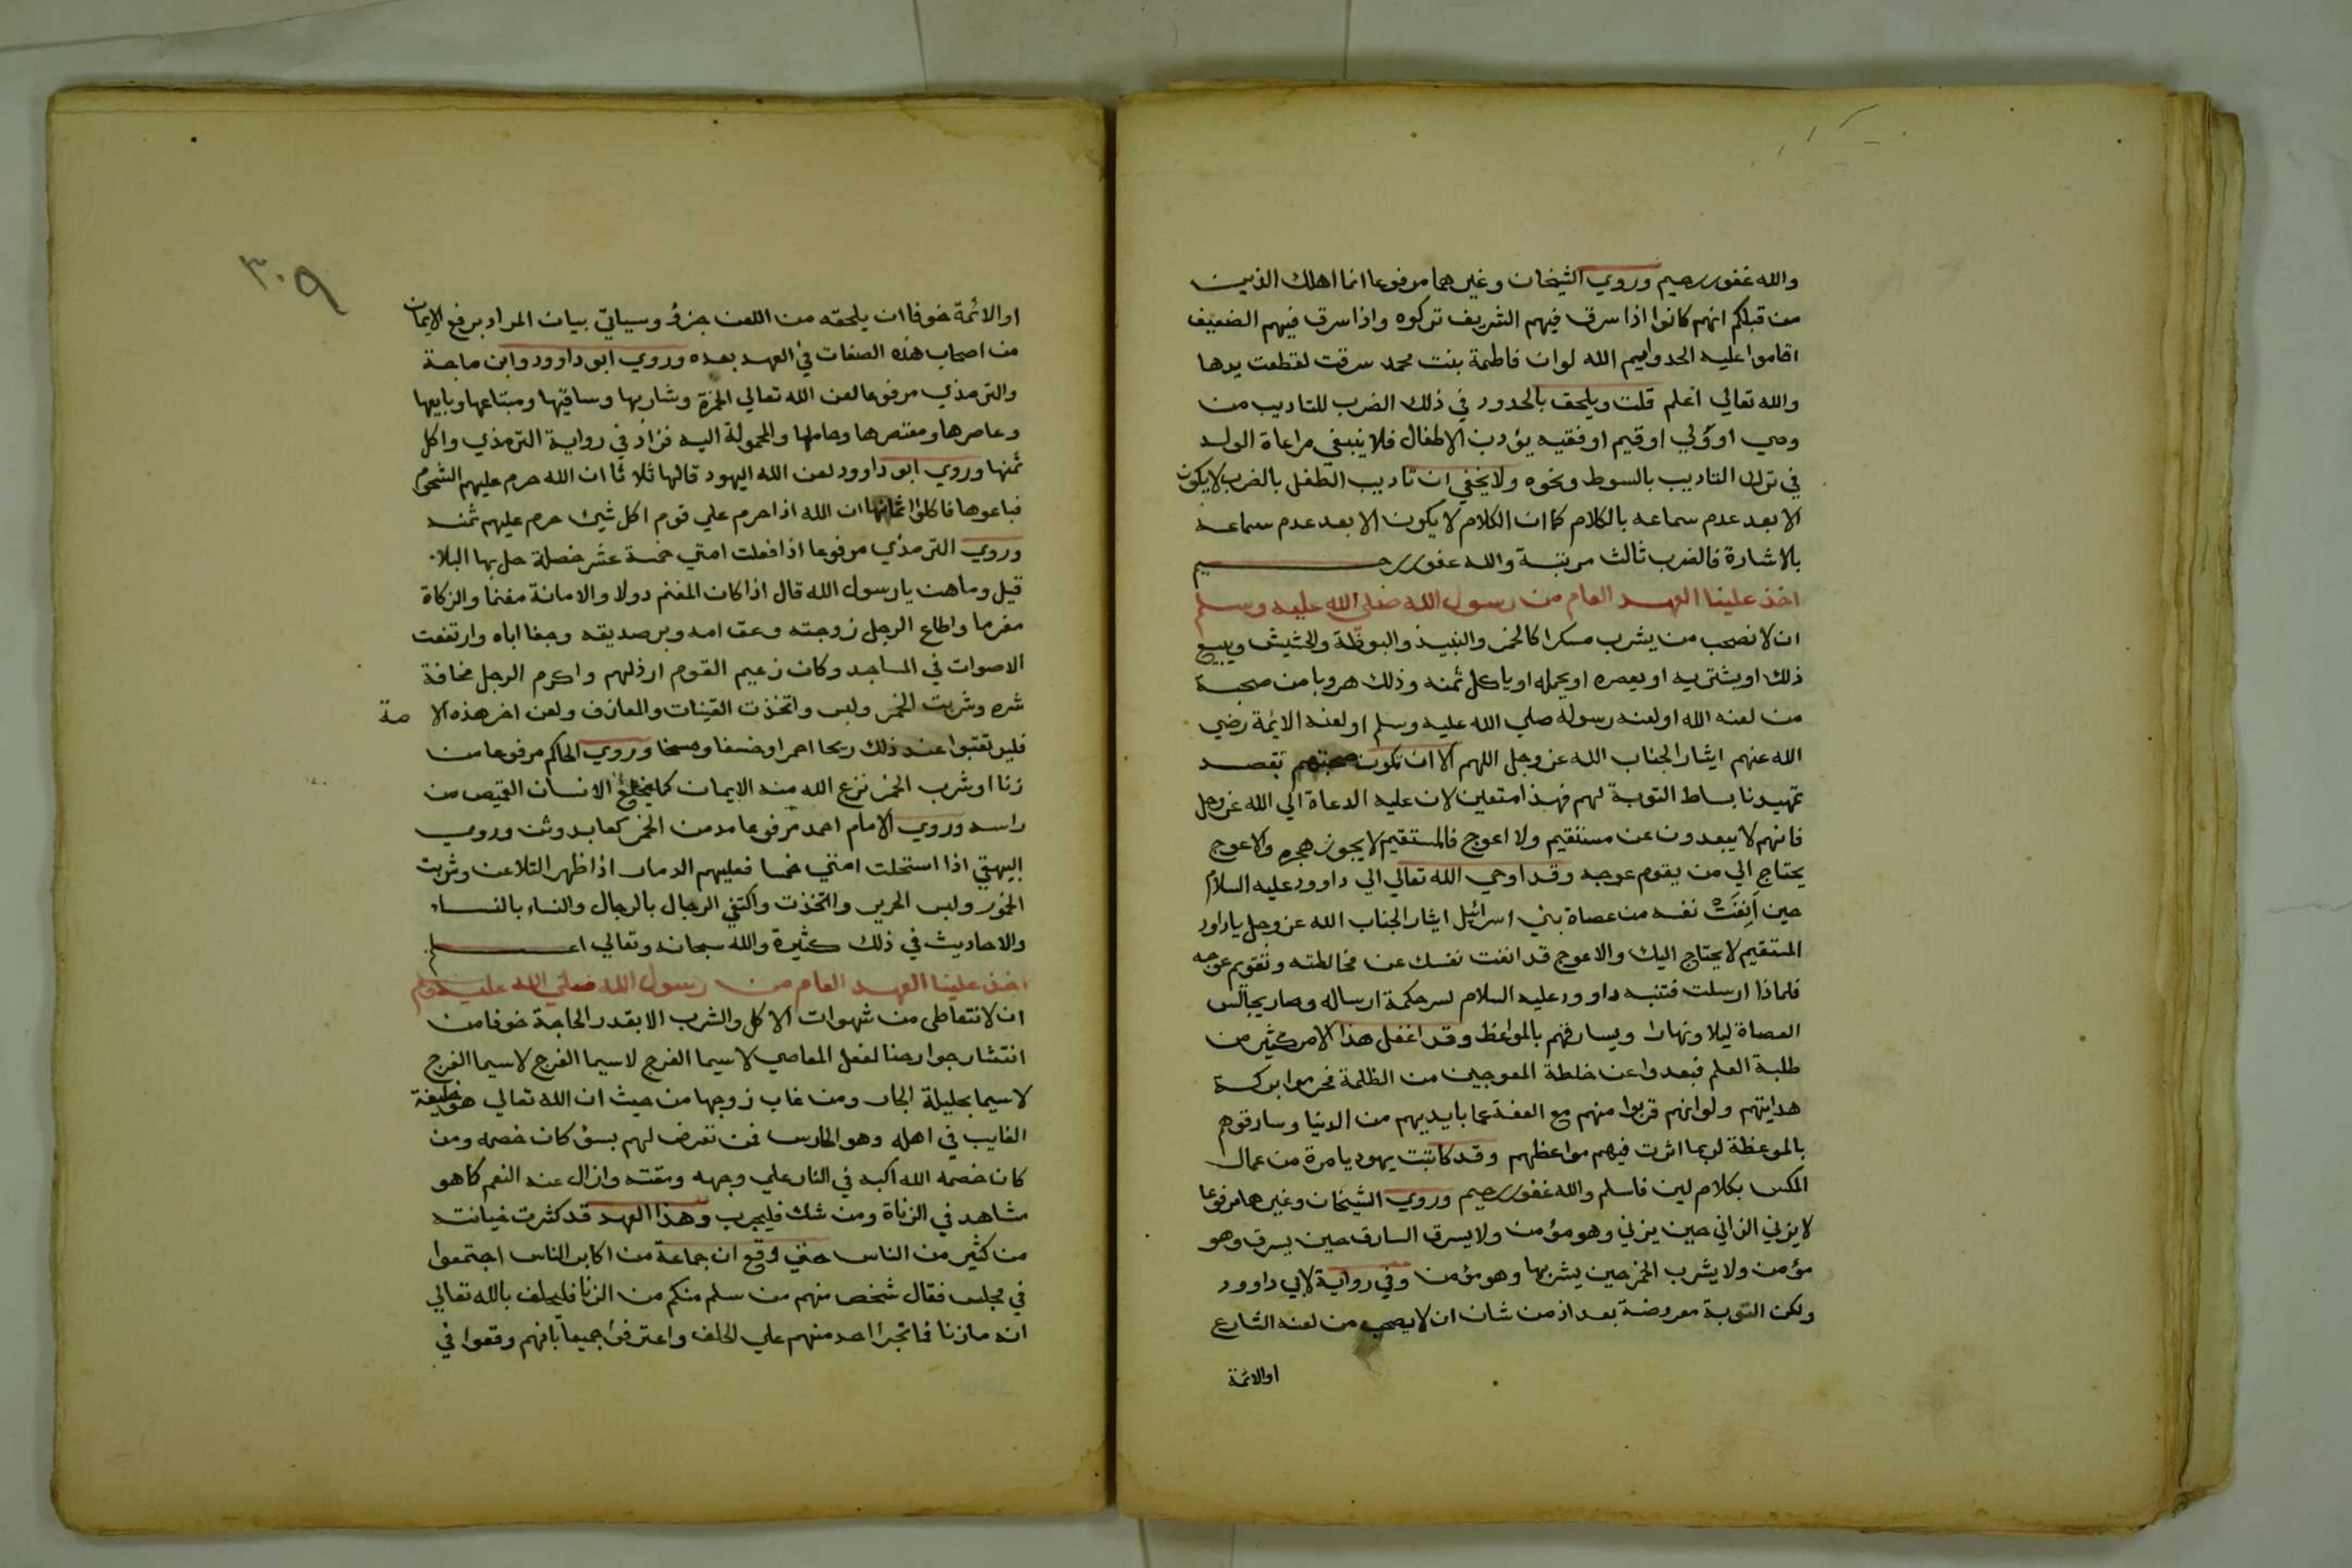 والله غفور رحيم وروي الشيخان وغيرهما مرفوعا انما اهلك الذين
من قبلكم انهم كانوا اذا سرق فيهم الشريف تركوه واذا سرق فيهم الضعيف
اقاموا عليه الحد وايم الله لو ان فاطمة بنت محمد سرقت لقطعت يدها
والله تعالي اعلم قلت ويلحق بالحدود في ذلك الضرب للتاديب من
وصي او ولي او قيم او فقيه يؤدب الاطفال فلا ينبغي مراعاة الولد
في ترك التاديب بالسوط ونحوه ولا يخفي ان تاديب الطفل بالضرب لا يكون
الا بعد عدم سماعه بالكلام كما ان الكلام لا يكون الا بعد عدم سماعه
بالاشارة فالضرب ثالث مرتبة والله غفور رحيم
اخذ علينا العهد العام من رسول الله صلى الله عليه وسلم
ان لا نصحب من يشرب مسكرا كالخمر والنبيذ والبوظة والحشيش ويبيع
ذلك او يشتريه او يعصره او يحمله او ياكل ثمنه وذلك هروبا من صحبة
من لعنه الله او لعنه رسوله صلي الله عليه وسلم او لعنه الايمة رضي
الله عنهم ايثار الجناب الله عز وجل اللهم الا ان تكون صحبتهم بقصد
تمهيدنا بساط التوبة لهم فهذا متعين لان عليه الدعاة الي الله عز وجل
فانهم لا يبعدون عن مستقيم ولا اعوج فالمستقيم لا يجوز هجره والاعوج
يحتاج الي من يقوم عوجه وقد اوحي الله تعالي الي داوود عليه السلام
حين اَنِفَتْ نفسه من عصاة بني اسرائيل ايثار الجناب الله عز وجل يا داود
المستقيم لا يحتاج اليك والاعوج قد انفت نفسك عن مخالطته وتقويم عوجه
فلماذا ارسلت فتنبه داوود عليه السلام لسر حكمة ارساله وصار يجالس
العصاة ليلا ونهارا ويسارقهم بالمواعظ وقد اغفل هذا الامر كثير من
طلبة العلم فبعدوا عن خلطة المعوجين من الظلمة فحرموا بركة
هدايتهم ولو انهم قربوا منهم مع العفة عما بايديهم من الدنيا وسارقوهم
بالموعظة لربما اثرت فيهم مواعظهم وقد كاتبت يهوديا مرة من عمال
المكس بكلام لين فاسلم والله غفور رحيم وروي الشيخان وغيرهما مرفوعا
لا يزني الزاني حين يزني وهو مؤمن ولا يسرق السارق حين يسرق وهو
مؤمن ولا يشرب الخمر حين يشربها وهو مؤمن وفي رواية لابي داوود
ولكن التوبة معروضة بعد اذ من شان ان لا يصحب من لعنه الشارع
او الائمة
٣٠٩
او الائمة خوفا ان يلحقه من اللعن جزؤ وسياتي بيان المراد برفع الايمان
من اصحاب هذه الصفات في العهد بعده وروي ابو داوود وابن ماجة
والترمذي مرفوعا لعن الله تعالي الخمرة وشاربها وساقيها ومبتاعها وبايعها
وعاصرها ومعتصرها وحاملها والمحمولة اليه فزاد في رواية الترمذي واكل
ثمنها وروي ابو داوود لعن الله اليهود قالها ثلاثا ان الله حرم عليهم الشحوم
فباعوها فاكلوا اثمانها ان الله اذا حرم علي قوم اكل شيئ حرم عليهم ثمنه
وروي الترمذي مرفوعا اذا فعلت امتي خمسة عشر خصلة حل بها البلاء
قيل وما هن يا رسول الله قال اذا كان المغنم دولا والامانة مغنما والزكاة
مغرما واطاع الرجل زوجته وعق امه وبر صديقه وجفا اباه وارتفعت
الاصوات في المساجد وكان زعيم القوم ارذلهم واكرم الرجل مخافة
شره وشربت الخمر ولبس واتخذت القينات والمعازف ولعن اخر هذه الا مة
فليرتقبوا عند ذلك ريحا احمرا وخسفا ومسخا وروي الحاكم مرفوعا من
زنا او شرب الخمر نزع الله منه الايمان كما يخلع الانسان القميص من
راسه وروي الامام احمد مرفوعا مدمن الخمر كعابد وثن وروي
البيهقي اذا استحلت امتي خمسا فعليهم الدمار اذا ظهر التلاعن وشربت
الخمور ولبس الحرير واتخذت واكتفي الرجال بالرجال والنساء بالنساء
والاحاديث في ذلك كثيرة والله سبحانه وتعالي اعلم
اخذ علينا العهد العام من رسول الله صلى الله عليه وسلم
ان لا نتعاطى من شهوات الاكل والشرب الا بقدر الحاجة خوفا من
انتشار جوارحنا لفعل المعاصي لا سيما الفرج لا سيما الفرج لا سيما الفرج
لا سيما بحليلة الجار ومن غاب زوجها من حيث ان الله تعالي هو خليفة
الغايب في اهله وهو الحارس فمن تعرض لهم بسؤ كان خصمه ومن
كان خصمه الله اكبه في النار علي وجهه ومقته وازال عنه النعم كما هو
مشاهد في الزناة ومن شك فليجرب وهذا العهد قد كثرت خيانته
من كثير من الناس حتي وقع ان جماعة من اكابر الناس اجتمعوا
في مجلس فقال شخص منهم من سلم منكم من الزنا فليحلف بالله تعالي
انه ما زنا فما تجرا احد منهم علي الحلف واعترفوا جميعا بانهم وقعوا في